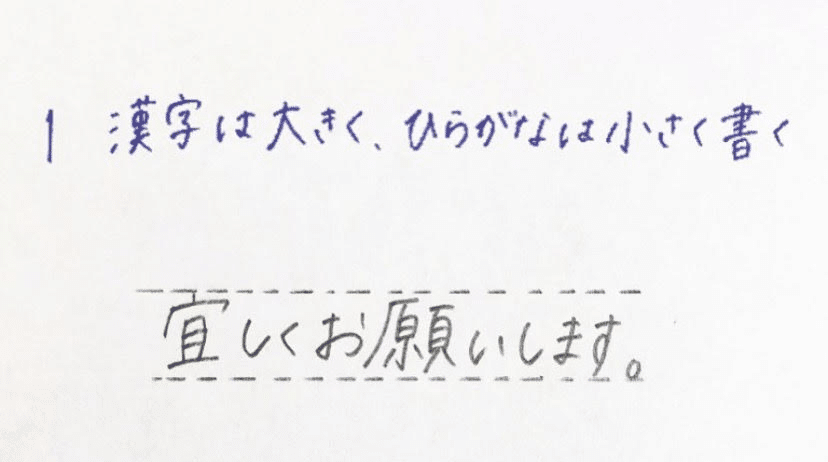 1 漢字は大きく、ひらがなは小さく書く
宜しくお願いします。